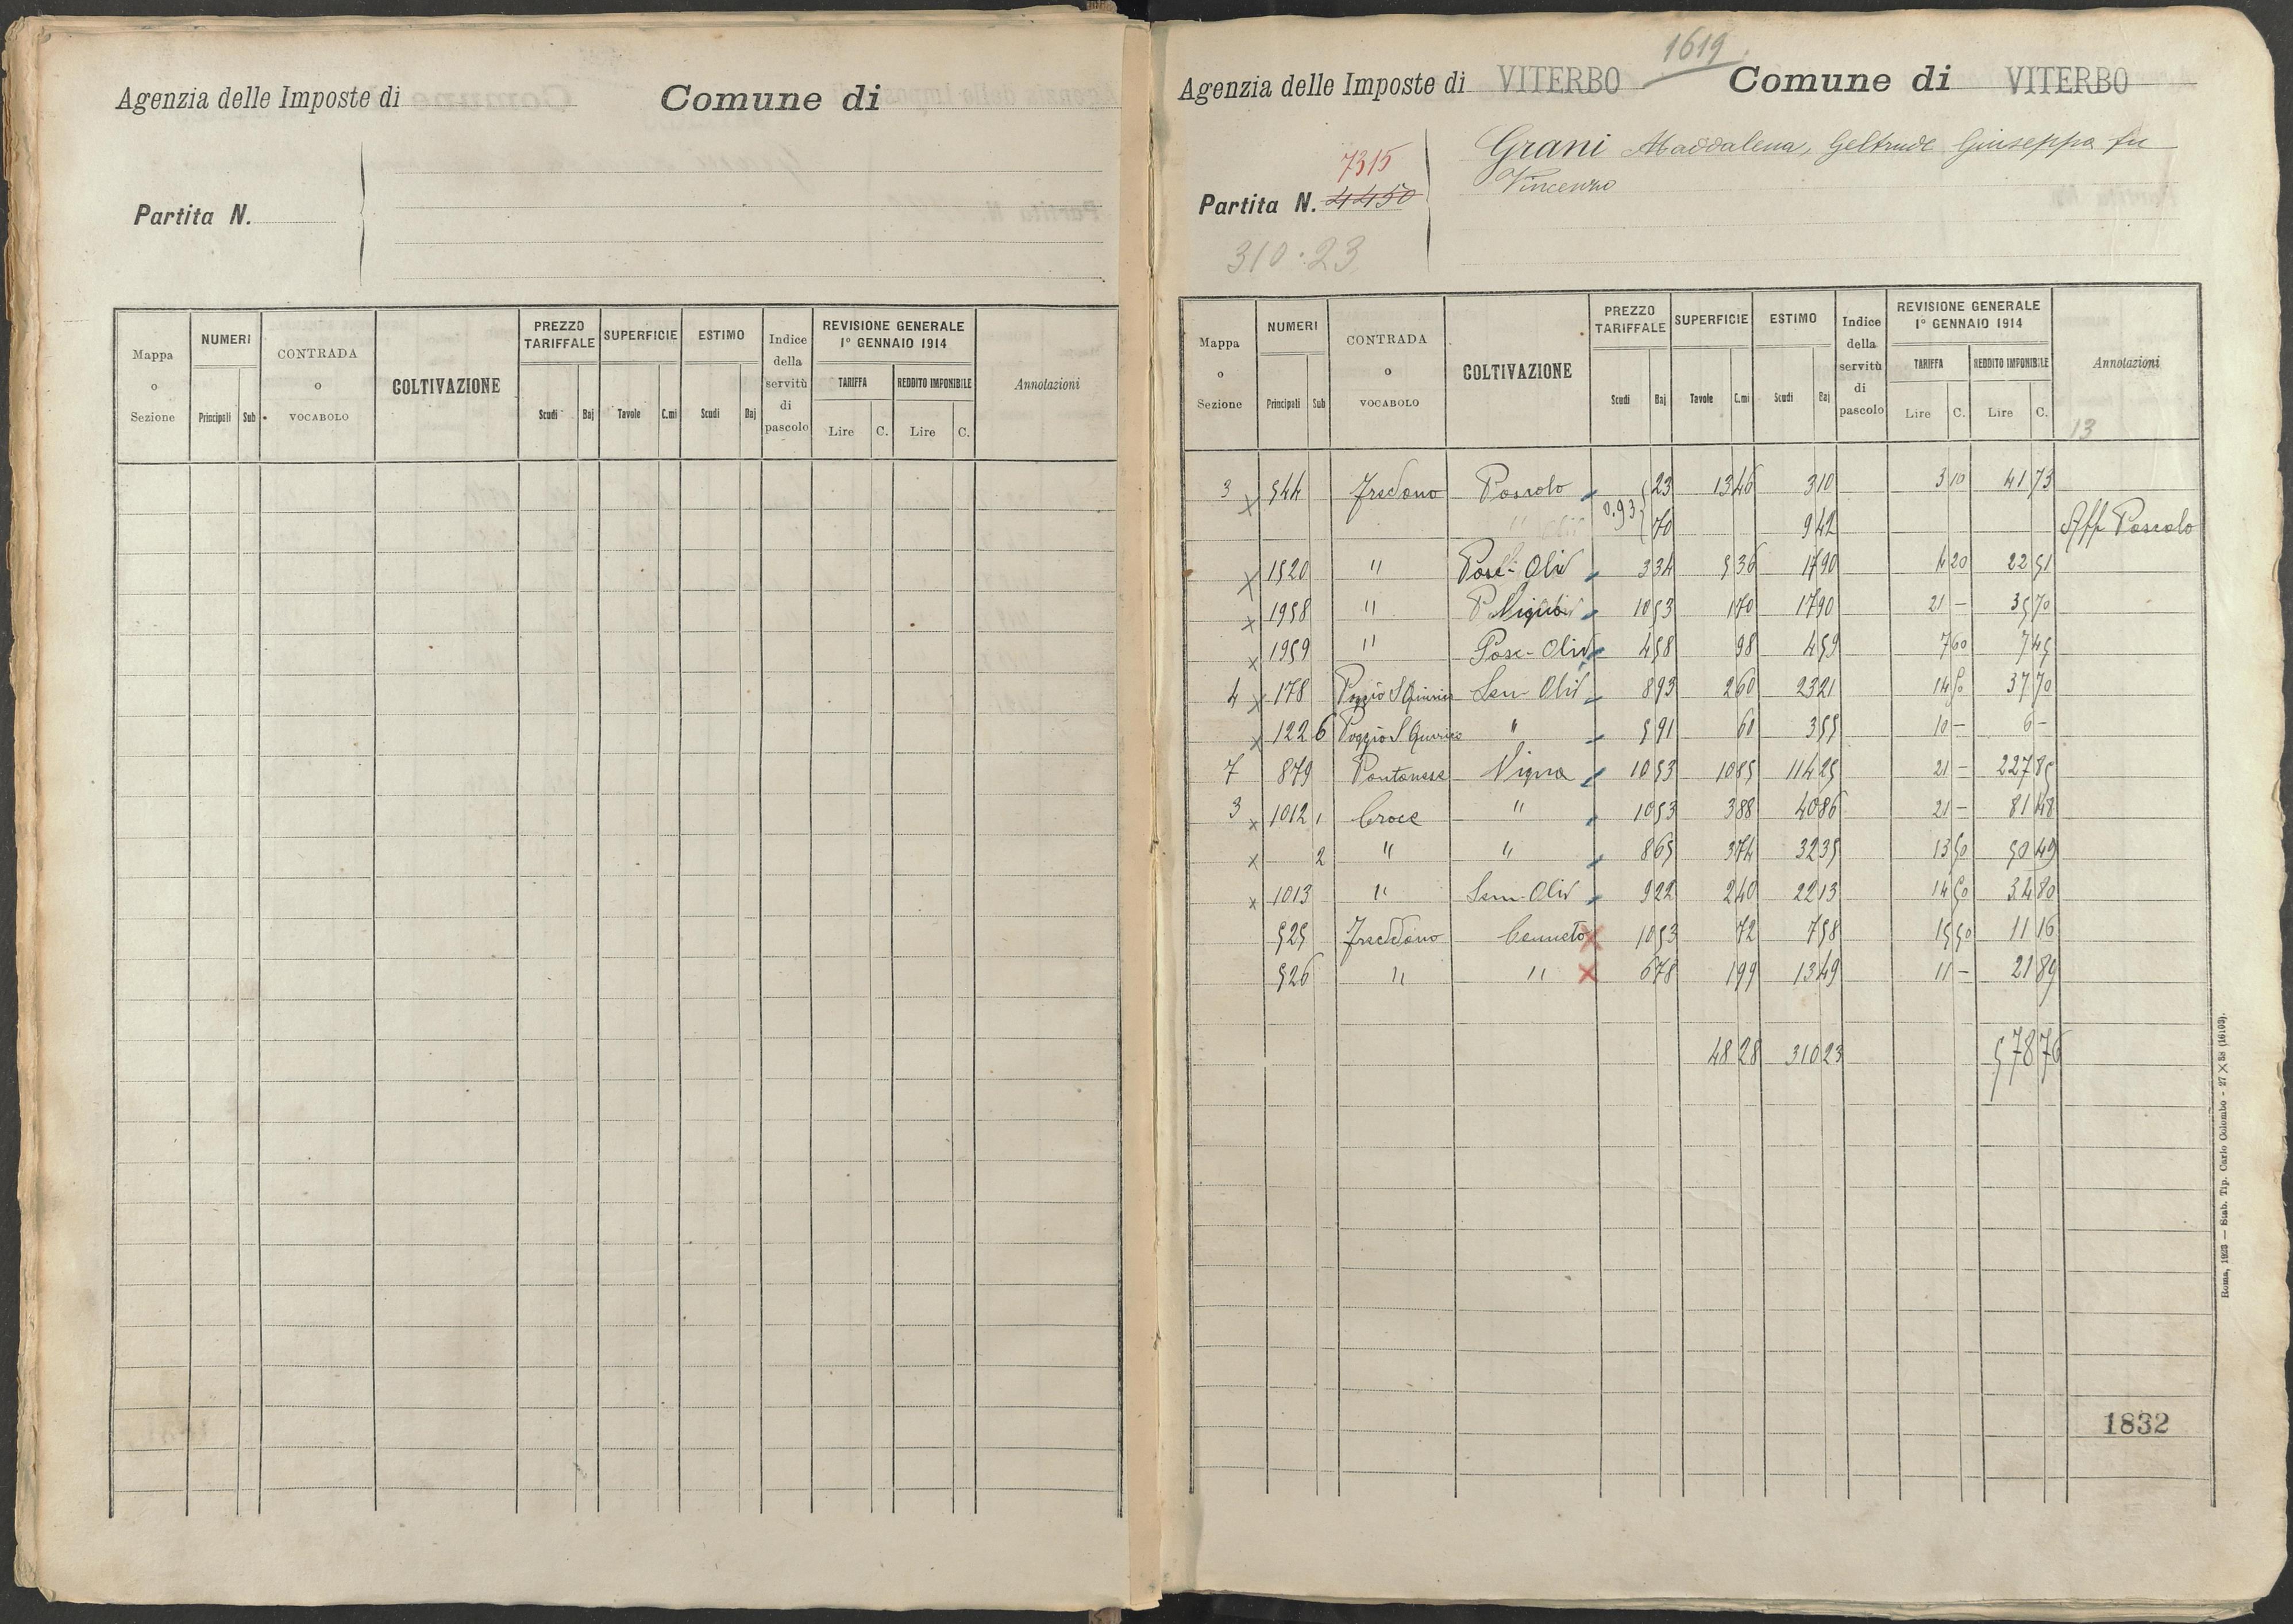 Agenzia delle Imposte di
Comune di
Partita N.
Mappa o Sezione
NUMERI
Principali Sub
CONTRADA o VOCABOLO
COLTIVAZIONE
PREZZO TARIFFALE
Scudi Baj
SUPERFICIE
Tavole C.mi
ESTIMO
Scudi Baj
Indice della servitù di pascolo
REVISIONE GENERALE 1° GENNAIO 1914
TARIFFA REDDITO IMPONIBILE
Lire C. Lire C.
Annotazioni
1619
Agenzia delle Imposte di VITERBO Comune di VITERBO
Grani Maddalena, Geltrude Giuseppa fu
Vincenzo
7315
Partita N. 4450
310.23
Mappa o Sezione
NUMERI
Principali Sub
CONTRADA o VOCABOLO
COLTIVAZIONE
PREZZO TARIFFALE
Scudi Baj
SUPERFICIE
Tavole C.mi
ESTIMO
Scudi Baj
Indice della servitù di pascolo
REVISIONE GENERALE 1° GENNAIO 1914
TARIFFA REDDITO IMPONIBILE
Lire C. Lire C.
Annotazioni
13
3 x 544 Fredano Pascolo 23 13 46 3 10 3 10 41 73
0.93 70 9 42 Aff Pascolo
x 1520 " Pasc-Oliv 3 34 5 36 17 90 4 20 22 51
x 1958 " P Vigna 10 53 1 70 17 90 21 – 35 70
x 1959 " Pasc-Oliv 4 58 98 4 59 7 60 7 45
4 x 178 Poggio S Quirico Sem-Oliv 8 93 2 60 23 21 14 50 37 70
x 122 6 Poggio S Quirico " 5 91 60 3 55 10 – 6 –
7 879 Pantanese Vigna 10 53 10 85 114 25 21 – 227 85
3 x 1012 1 Croce " 10 53 3 88 40 86 21 – 81 48
x 2 " " 8 65 3 74 32 35 13 50 50 49
x 1013 " Sem-Oliv 9 22 2 40 22 13 14 50 34 80
525 Freddano Canneto x 10 53 72 7 58 15 50 11 16
526 " " x 6 78 1 99 13 49 11 – 21 89
48 28 310 23 578 76
1832
Roma, 1923 — Stab. Tip. Carlo Colombo - 27 X 38 (16103).